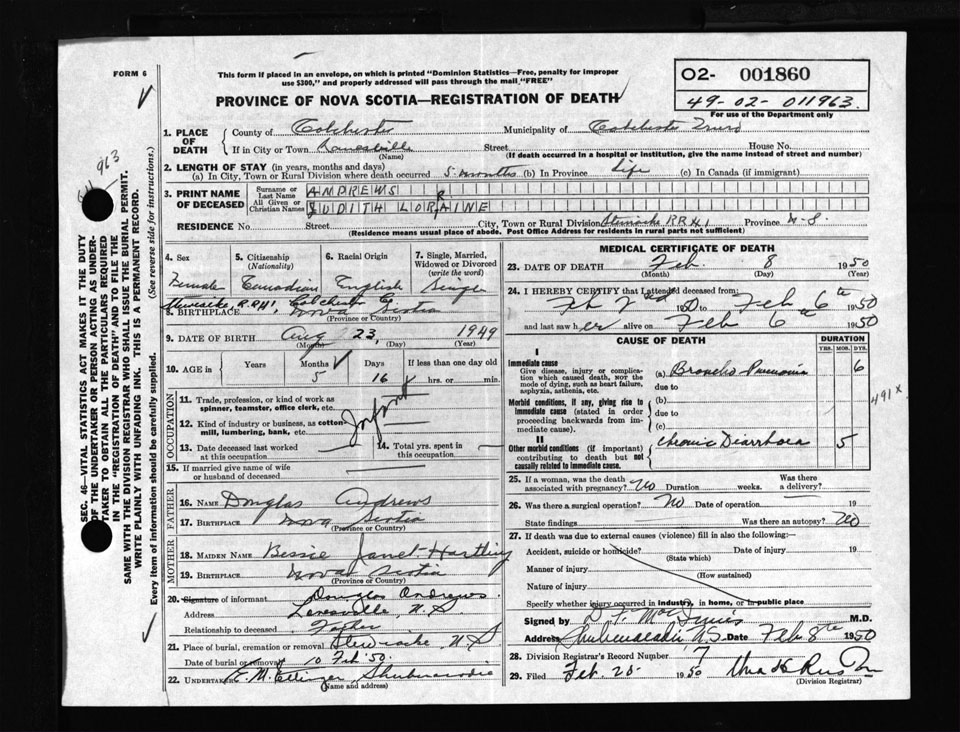 FORM 6
This form if placed in an envelope, on which is printed "Dominion Statistics—Free, penalty for improper
use $300," and properly addressed will pass through the mail "FREE"
PROVINCE OF NOVA SCOTIA—REGISTRATION OF DEATH
O2- 001860
49-02-011963
For use of the Department only
1. PLACE OF DEATH
County of Colchester Municipality of Colchester Truro
If in City or Town Street House No.
(Name) (If death occurred in a hospital or institution, give the name instead of street and number)
2. LENGTH OF STAY (in years, months and days)
(a) In City, Town or Rural Division where death occurred 5 months (b) In Province Life (c) In Canada (if immigrant)
3. PRINT NAME OF DECEASED
Surname or Last Name ANDREWS
All Given or Christian Names JUDITH LORRAINE
RESIDENCE No. Street City, Town or Rural Division RR#1 Province N-S.
(Residence means usual place of abode. Post Office Address for residents in rural parts not sufficient)
4. Sex Female
5. Citizenship (Nationality) Canadian
6. Racial Origin English
7. Single, Married, Widowed or Divorced (write the word) Single
8. BIRTHPLACE R.R#1, Colchester Co. Nova Scotia
(Province or Country)
9. DATE OF BIRTH Aug 23, 1949
(Month) (Day) (Year)
10. AGE in Years Months 5 Days 16 If less than one day old hrs. or min.
OCCUPATION
11. Trade, profession, or kind of work as spinner, teamster, office clerk, etc. Infant
12. Kind of industry or business, as cotton mill, lumbering, bank, etc.
13. Date deceased last worked at this occupation
14. Total yrs. spent in this occupation
15. If married give name of wife or husband of deceased
FATHER
16. NAME Douglas Andrews
17. BIRTHPLACE Nova Scotia
(Province or Country)
MOTHER
18. MAIDEN NAME Bessie Janet Hartling
19. BIRTHPLACE Nova Scotia
(Province or Country)
20. Signature of informant Douglas Andrews
Address N.S.
Relationship to deceased Father
21. Place of burial, cremation or removal N S
Date of burial or removal 10 Feb '50.
22. UNDERTAKER E. M. Ettinger Shubenacadie
(Name and address)
MEDICAL CERTIFICATE OF DEATH
23. DATE OF DEATH Feb. 8 1950
(Month) (Day) (Year)
24. I HEREBY CERTIFY that I attended deceased from:
Feb 2nd 1950 to Feb 6th 1950
and last saw her alive on Feb 6th 1950
CAUSE OF DEATH
DURATION
YRS. MOS. DYS.
I
Immediate cause
Give disease, injury or complication which caused death, not the mode of dying, such as heart failure, asphyxia, asthenia, etc.
(a) Broncho Pneumonia 6
due to
Morbid conditions, if any, giving rise to immediate cause (stated in order proceeding backwards from immediate cause).
(b)
due to
(c)
II
Other morbid conditions (if important) contributing to death but not causally related to immediate cause.
Chronic Diarrhoea 5
491 x
25. If a woman, was the death associated with pregnancy? No Duration weeks. Was there a delivery?
26. Was there a surgical operation? No Date of operation 19
State findings Was there an autopsy? No
27. If death was due to external causes (violence) fill in also the following:—
Accident, suicide or homicide? Date of injury 19
(State which)
Manner of injury
(How sustained)
Nature of injury
Specify whether injury occurred in industry, in home, or in public place
Signed by D. F. MacInnis M.D.
Address Shubenacadie, N.S. Date Feb 8th 1950
28. Division Registrar's Record Number 7
29. Filed Feb. 25 1950
(Division Registrar)
SEC. 46—VITAL STATISTICS ACT MAKES IT THE DUTY
OF THE UNDERTAKER OR PERSON ACTING AS UNDER-
TAKER TO OBTAIN ALL THE PARTICULARS REQUIRED
IN THE "REGISTRATION OF DEATH" AND TO FILE THE
SAME WITH THE DIVISION REGISTRAR WHO SHALL ISSUE THE BURIAL PERMIT.
WRITE PLAINLY WITH UNFADING INK. THIS IS A PERMANENT RECORD.
Every item of information should be carefully supplied. (See reverse side for instructions.)
963